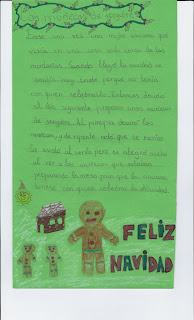 Los muñecos de jengibre
Erase una vez una mujer anciana que
vivía en una casa sola cerca de las
montañas. Cuando llegó la navidad se
sentía muy triste porque no tenía
con quien celebrarlo. Entonces decidió
al día siguiente preparar unos muñecos
de jengibre. Al ponerlos
y de repente notó que se movían.
Se asustó al verlo pero se alegró mucho
al ver a los muñecos que estaban
preparando la mesa para que la anciana
tuviese con quien celebrar la Navidad.
FELIZ
NAVIDAD